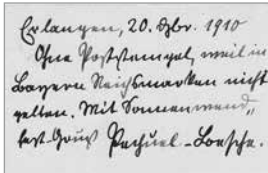 Erlangen, 20. Dzbr. 1910
Ohne Poststempel, weil in
Bayern Reichsmarken nicht
gelten. Mit Sonnenwend„
fest-Gruß Pechuel-Loesche.